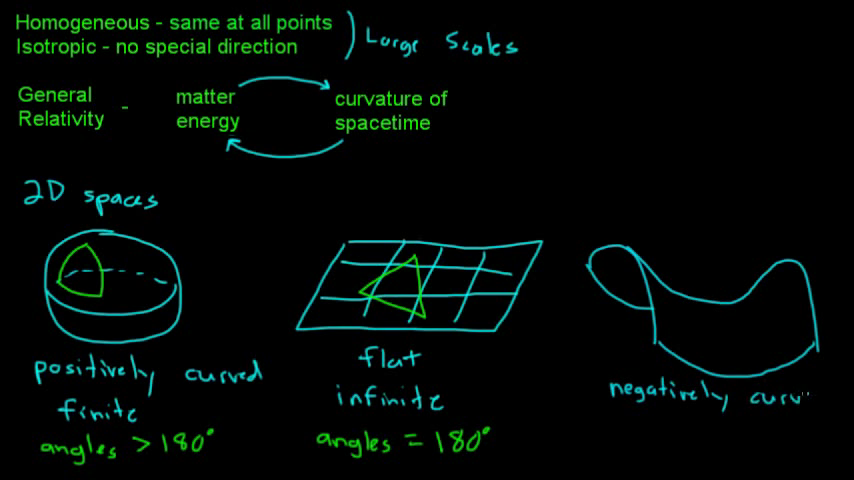 Homogeneous - same at all points
Isotropic - no special direction
Large Scales
General Relativity - matter energy curvature of spacetime
2D spaces
positively curved
finite
angles > 180°
flat
infinite
angles = 180°
negatively curv